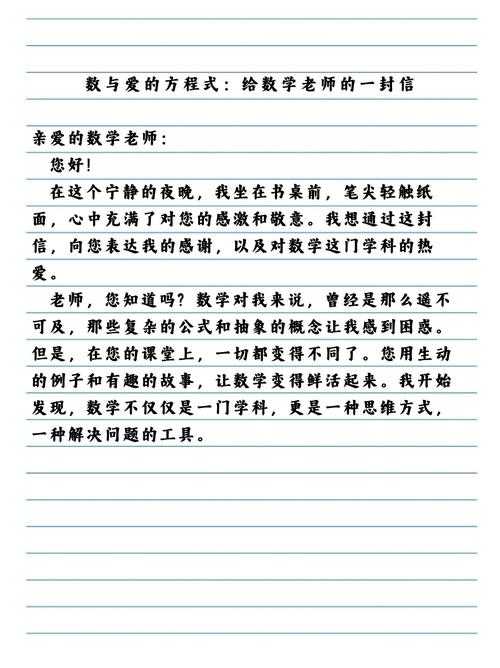 数与爱的方程式：给数学老师的一封信
亲爱的数学老师：
您好！
在这个宁静的夜晚，我坐在书桌前，笔尖轻触纸
面，心中充满了对您的感激和敬意。我想通过这封
信，向您表达我的感谢，以及对数学这门学科的热
爱。
老师，您知道吗？数学对我来说，曾经是那么遥不
可及，那些复杂的公式和抽象的概念让我感到困惑。
但是，在您的课堂上，一切都变得不同了。您用生动
的例子和有趣的故事，让数学变得鲜活起来。我开始
发现，数学不仅仅是一门学科，更是一种思维方式，
一种解决问题的工具。